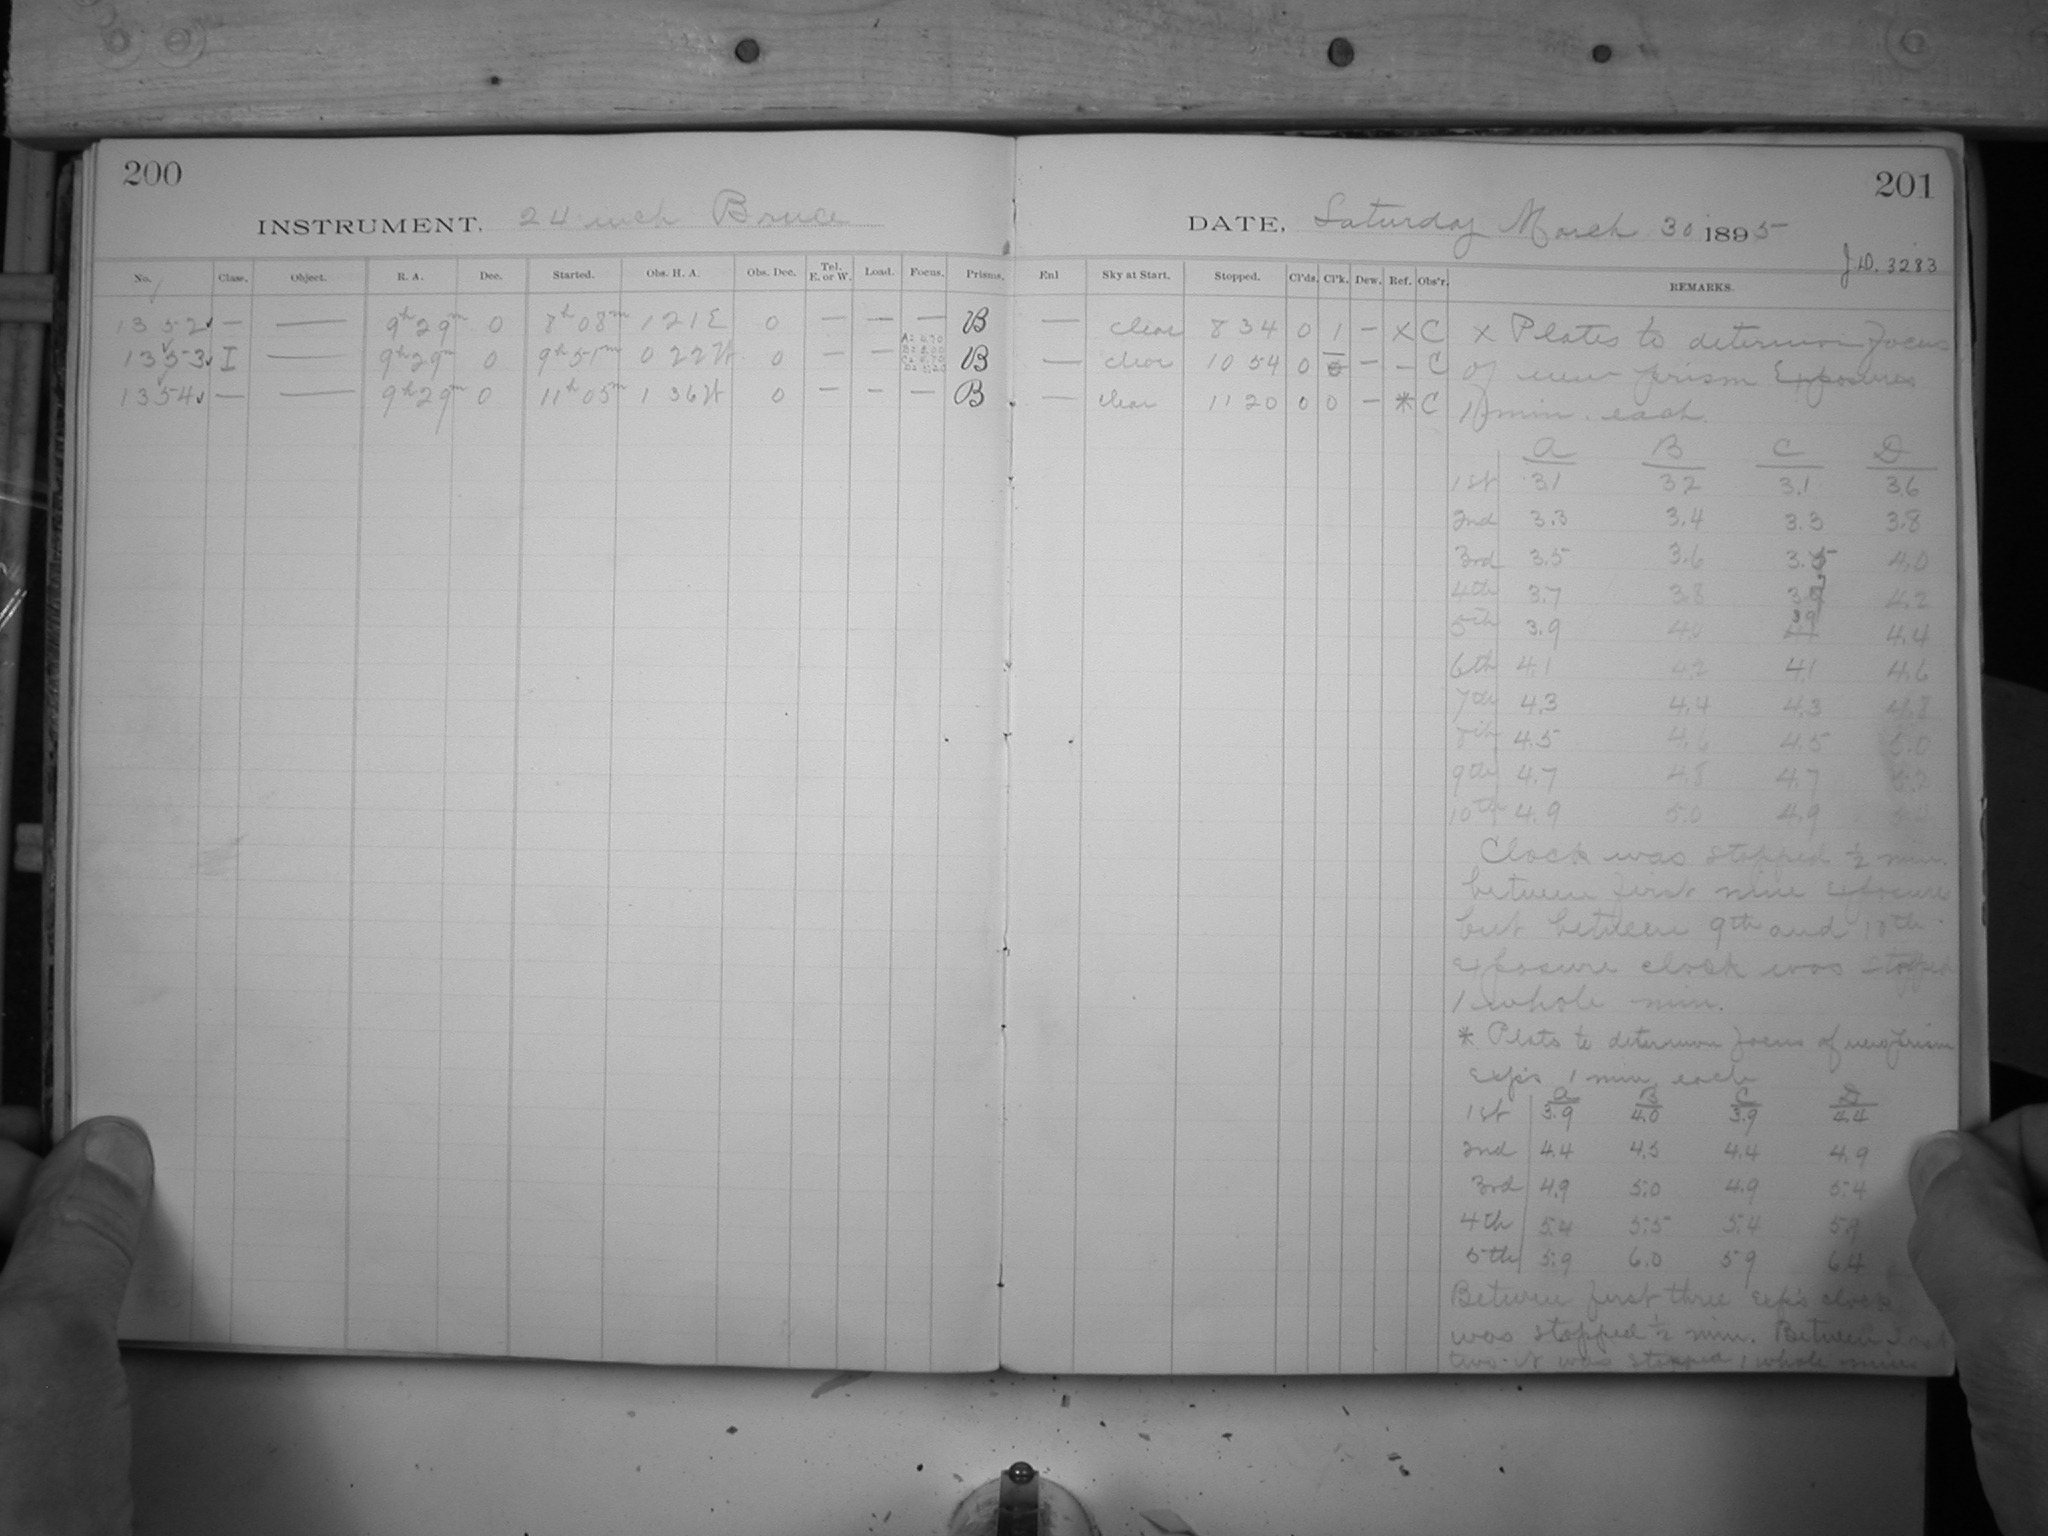 200
INSTRUMENT. 24 inch Bruce
No. Class. Object. R. A. Dec. Started. Obs. H. A. Obs. Dec. Tel. E. or W. Load. Focus. Prisms.
1352 — — 9h 29m 0 8h 08m 1 21 E 0 — — — B
1353 I — 9h 29m 0 9h 51m 0 22 W 0 — — B
1354 — — 9h 29m 0 11h 05m 1 36 W 0 — — — B
201
DATE, Saturday March 30 1895
J.D. 3283
Enl Sky at Start. Stopped. Cl'ds. Cl'k. Dew. Ref. Obs'r. REMARKS.
— clear 8 34 0 1 — X C
— clear 10 54 0 — — C
— clear 11 20 0 0 — * C
x Plates to determon focus
of new prism Exposures
1 min. each.
A B C D
1st 3.1 3.2 3.1 3.6
2nd 3.3 3.4 3.3 3.8
3rd 3.5 3.6 3.5 4.0
4th 3.7 3.8 3.7 4.2
5th 3.9 4.0 3.9 4.4
6th 4.1 4.2 4.1 4.6
7th 4.3 4.4 4.3 4.8
8th 4.5 4.6 4.5 5.0
9th 4.7 4.8 4.7 5.2
10th 4.9 5.0 4.9 5.4
Clock was stopped ½ min.
between first nine exposures
but between 9th and 10th
exposure clock was stopped
1 whole min.
* Plats to determon focus of new prism
Exp's 1 min. each
A B C D
1st 3.9 4.0 3.9 4.4
2nd 4.4 4.5 4.4 4.9
3rd 4.9 5.0 4.9 5.4
4th 5.4 5.5 5.4 5.9
5th 5.9 6.0 5.9 6.4
Between first three Exp's clock
was stopped ½ min. Between last
two it was stopped 1 whole